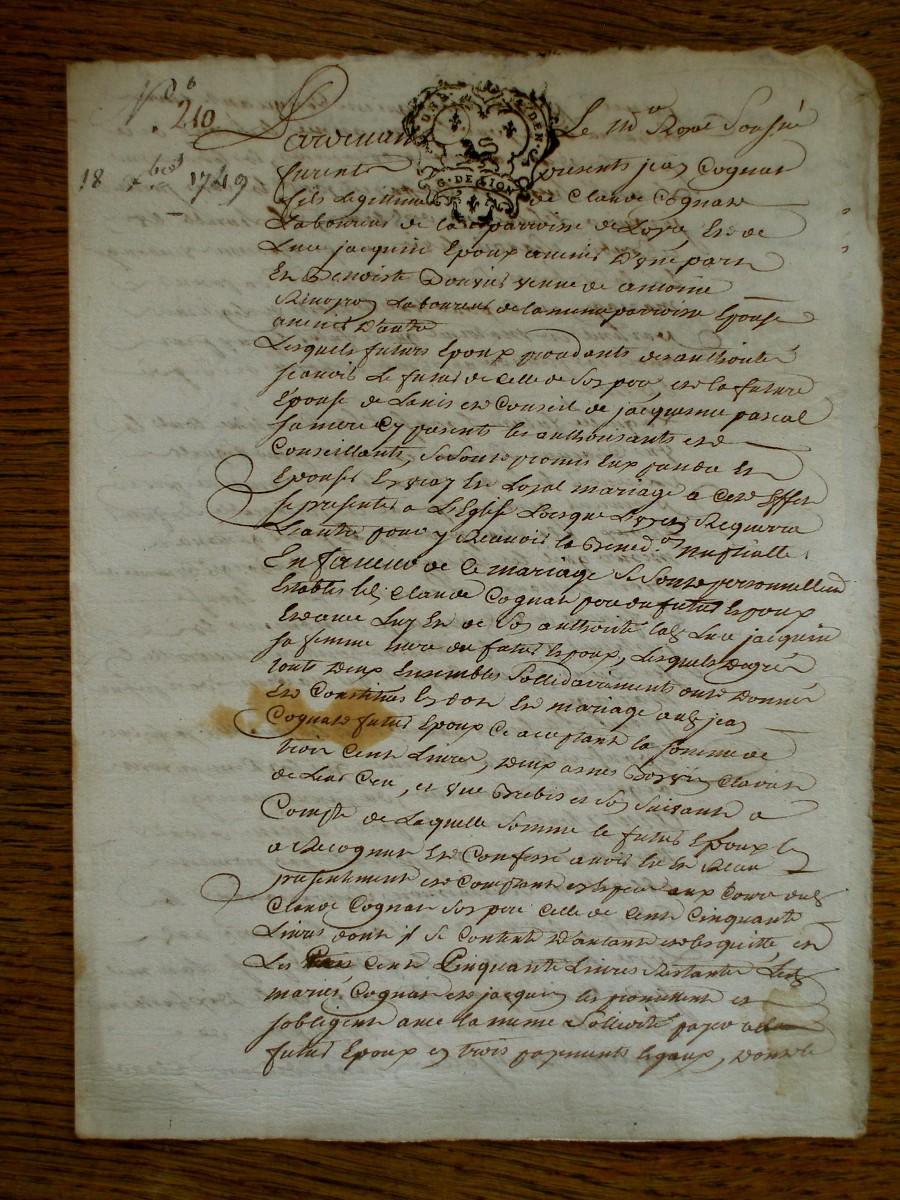 N° 210
18 xbre 1749
Pardevant Le nore Royal Soussigné
furent presents jean Cognat
fils Legitime de Claude Cognat
Laboureur de la parroisse de Et de
Luce jacquin Epoux a venir D'une part
Et Benoiste veuve de antoine
Laboureur de la meme parroisse Epouse
avenir D'autre
Lesquels futurs Epoux procedants de authorité
scavoir Le futur de Celle de Son pere, et la future
Epouse de L'avis et Conseil de jacquème pascal
sa mere Cy presents les authorisants et
Conseillants, Se Sont promis Eux prendre Et
Epouser En vray Et Loyal mariage a Cet Effet
se presenter a L'Eglise Lorsque L'un En Requerra
L'autre pour y Recevoir la Bened.on Nuptialle
En faveur de Ce mariage Se Sont personnellement
Establis led Claude Cognat pere du futur Epoux
Et avec Luy Et de Son authorité lad Luce jacquin
sa femme mere du futur Epoux, Lesquels De gré
touts Deux Ensembles Sollidairement ont Donné
Et Constitué En dot Et mariage aud jean
Cognat futur Epoux Ce acceptant la somme de
trois Cent Livres, Deux asnes
de Leur Cru, et une Brebis et Son Suivant a
Compte de Laquelle Somme le futur Epoux
a Recognu Et Confessé avoir Eu Et Reçu
presentement et Comptant En Especes aux Cours dud
Claude Cognat Son pere Celle de Cent Cinquante
Livres dont il Se Contente D'autant et les quitte et
Les Cent Cinquante Livres Restantes Lesd
mariés Cognat et jacquin les promettent et
sobligent avec la meme Sollidité payer aud
futur Epoux en trois payements Egaux, Dont le
G. DE LION